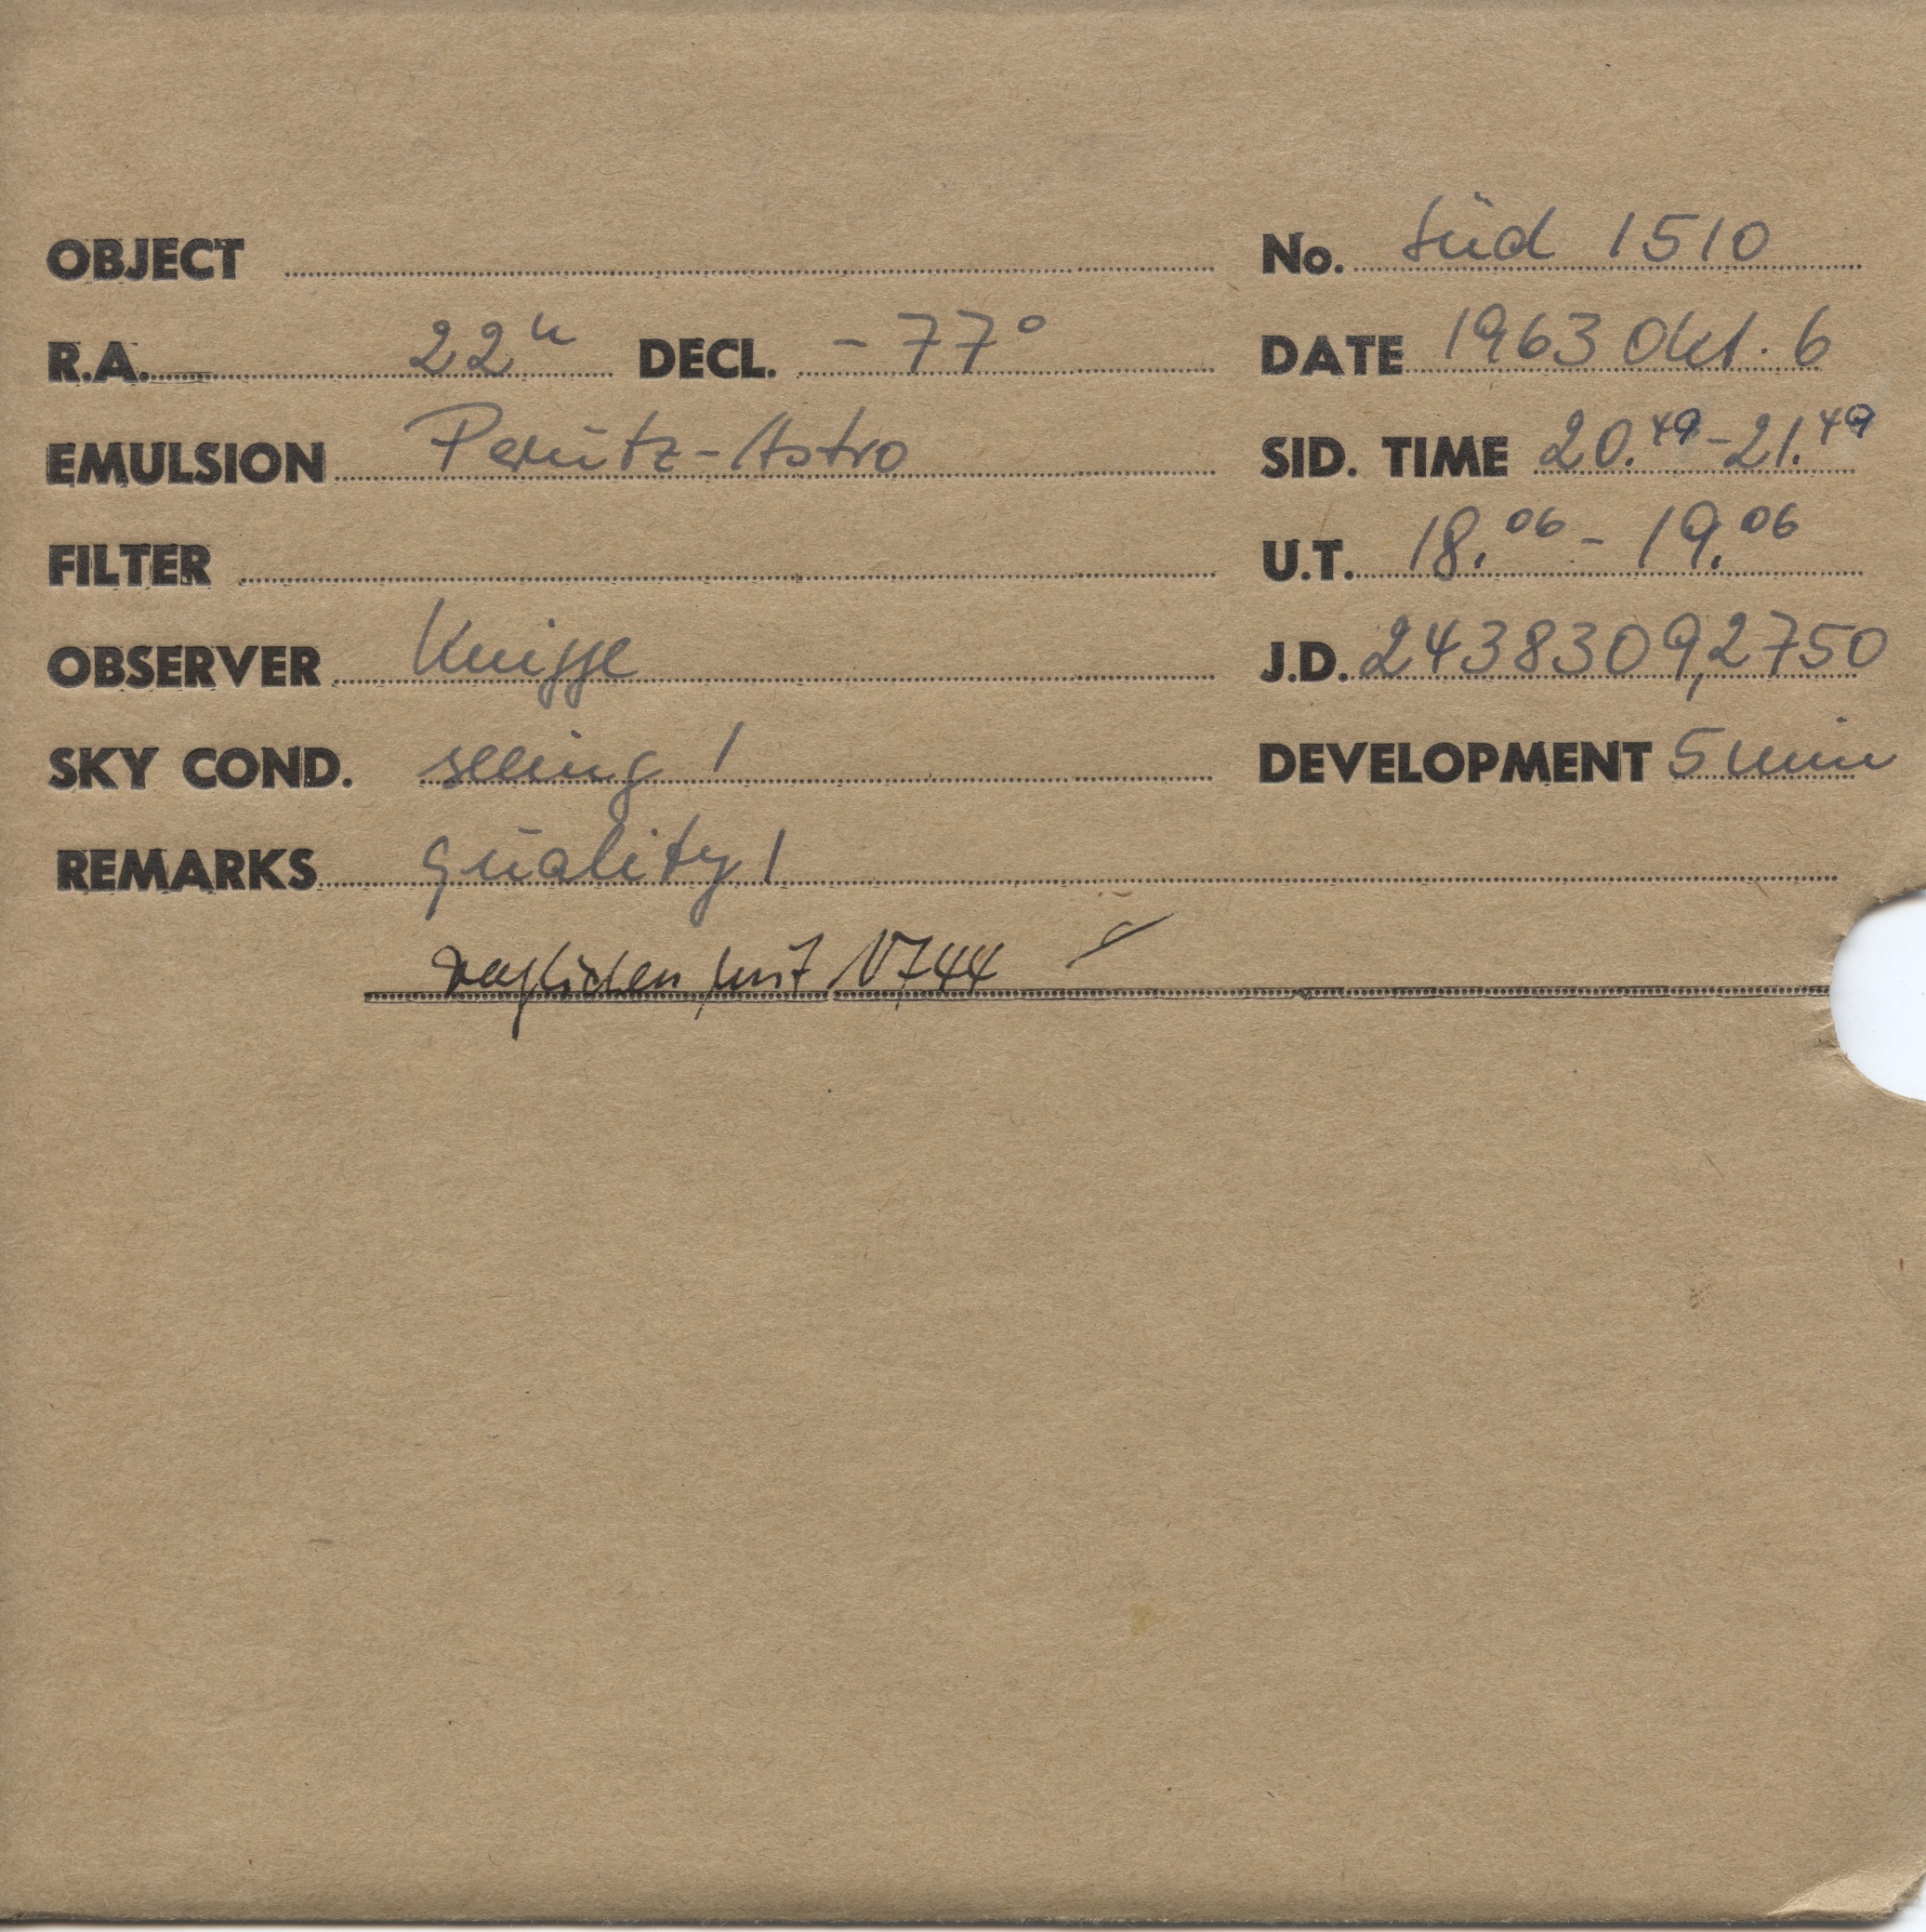 OBJECT No. Süd 1510
R.A. 22h DECL. -77° DATE 1963 Okt. 6
EMULSION Perutz-Astro SID. TIME 20.49-21.49
FILTER U.T. 18.06 - 19.06
OBSERVER Knigge J.D. 2438309,2750
SKY COND. seeing 1 DEVELOPMENT 5 min
REMARKS quality 1
verglichen mit 1744